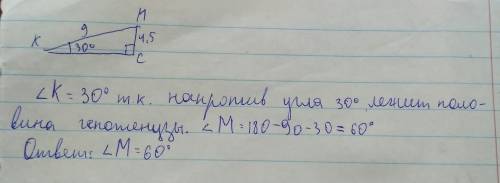 М
9
К
30°
4,5
С
∠К = 30° т.к. напротив угла 30° лежит поло-
вина гепотенузы. ∠М = 180 - 90 - 30 = 60°
Ответ: ∠М = 60°